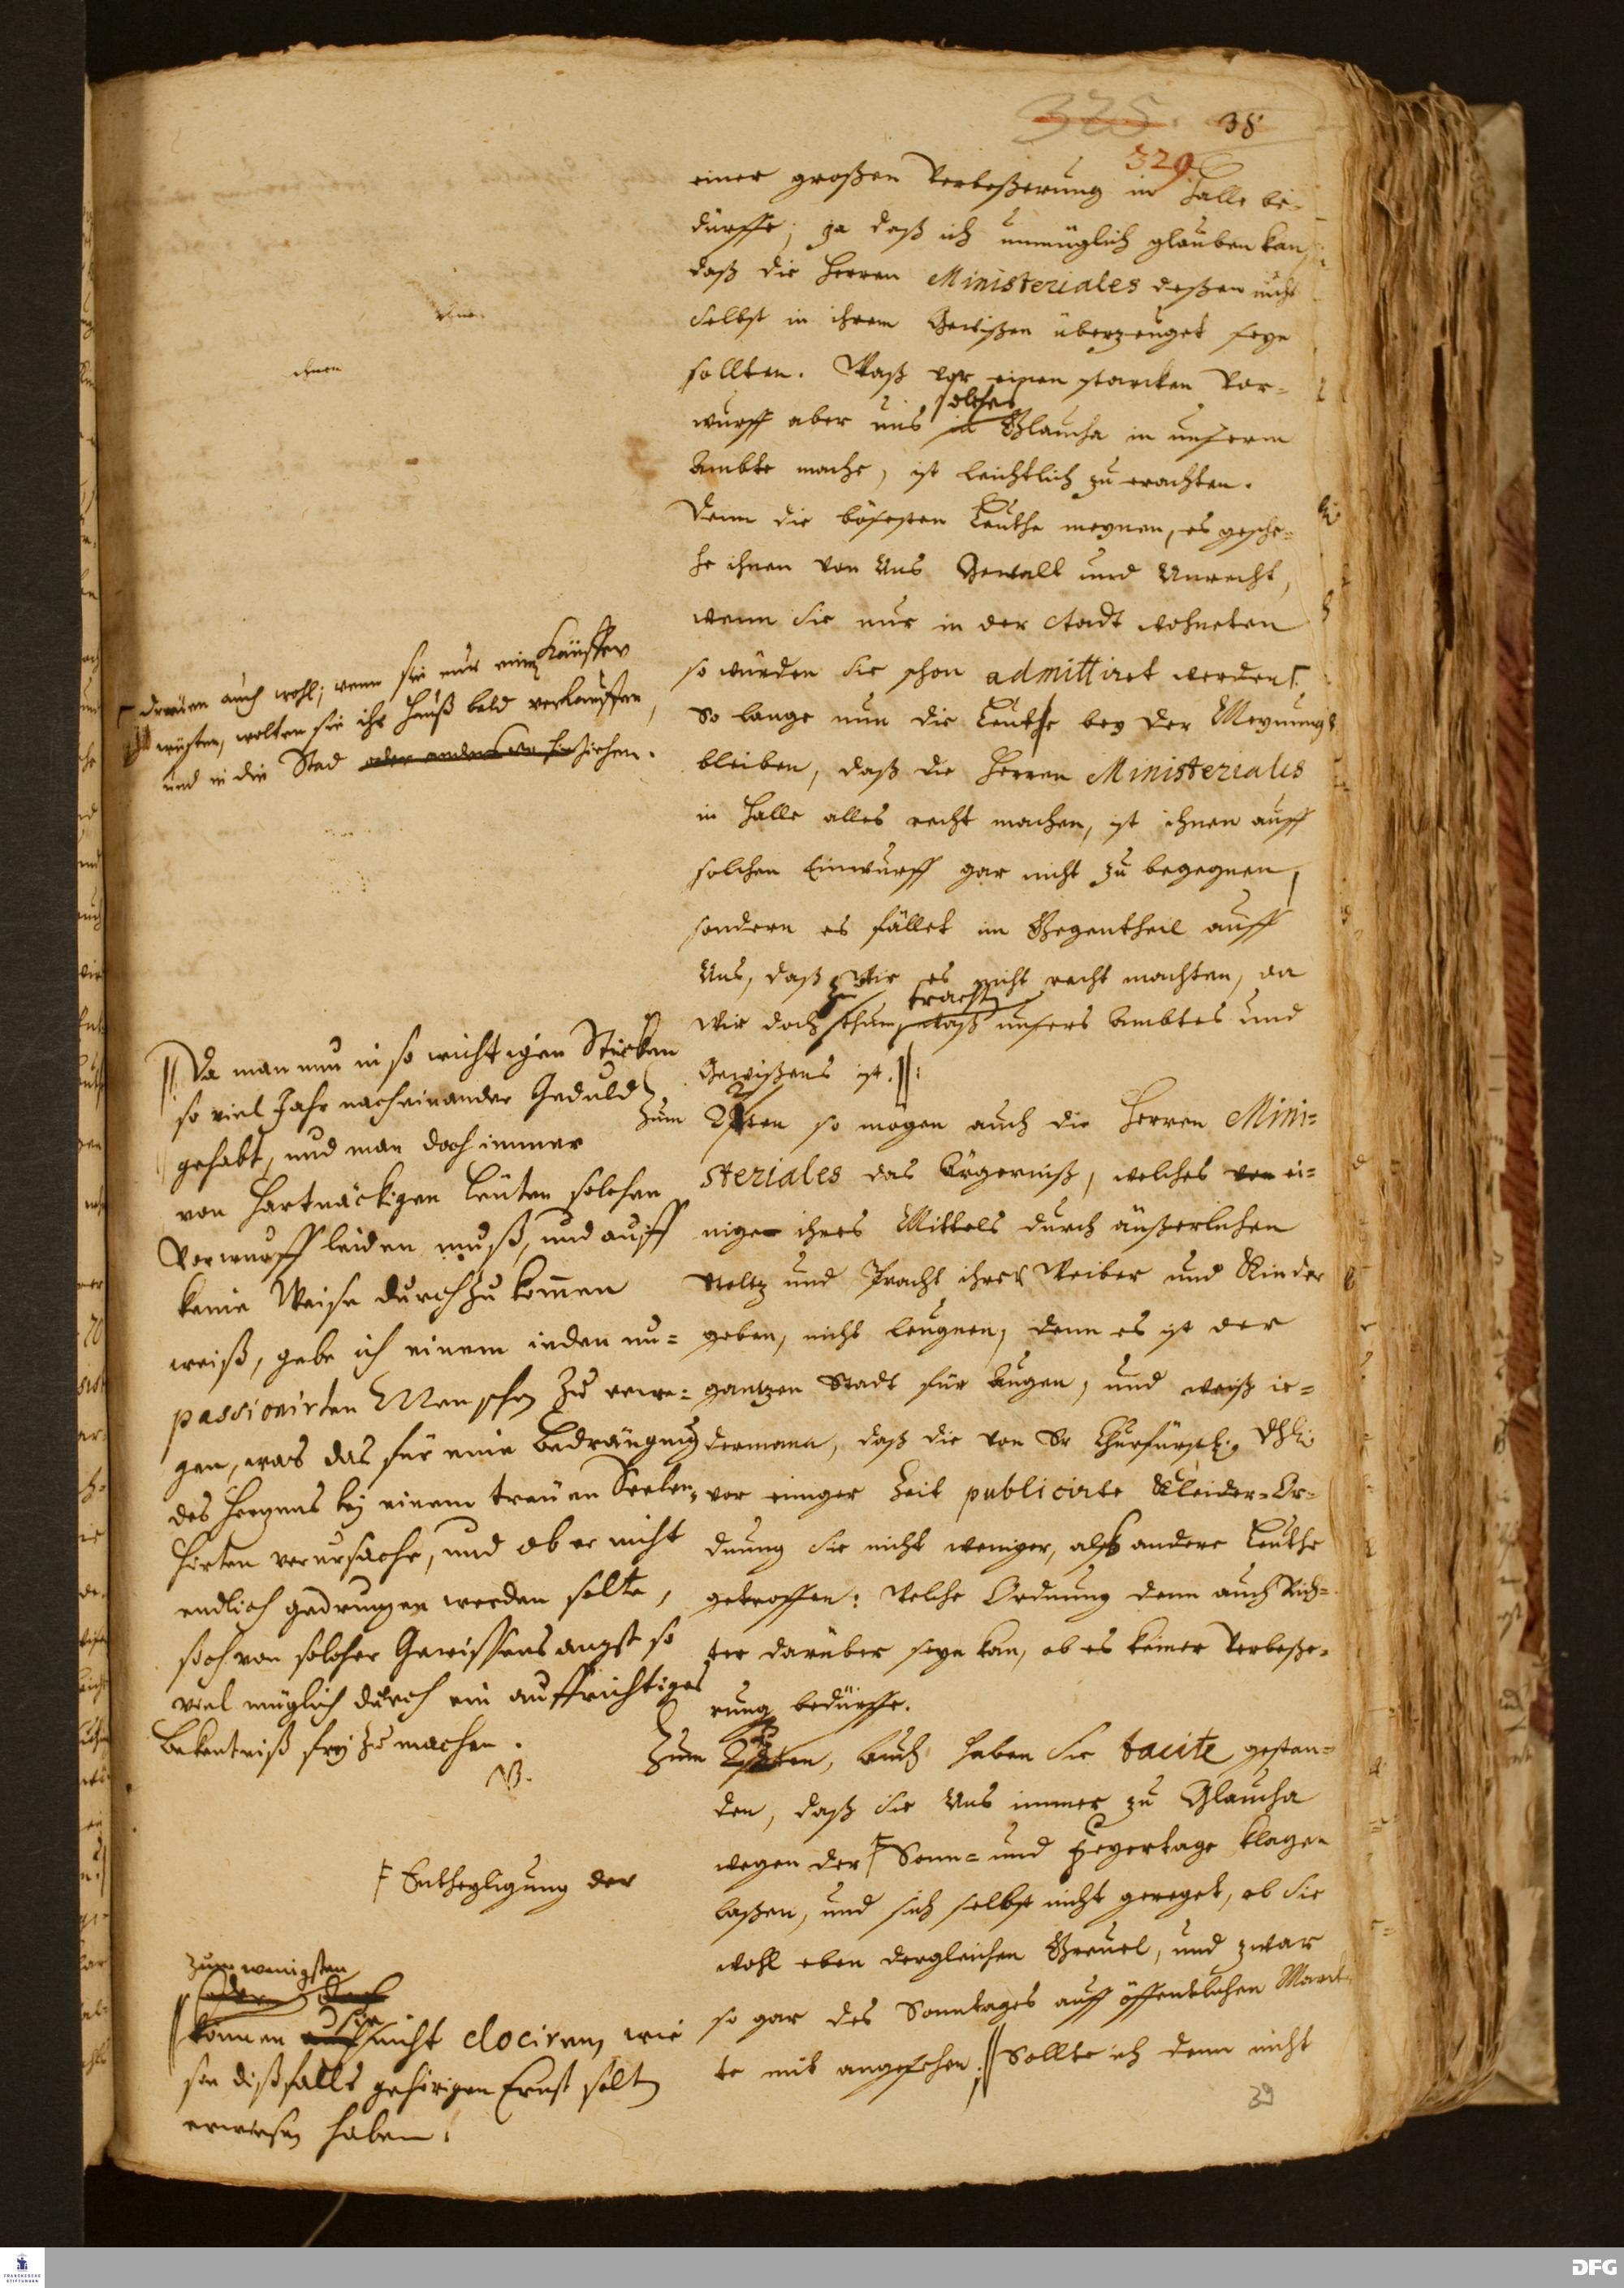 325.
38
329
einer großen Verbeßerung in Halle be-
dürffe, ja daß ich unmüglich glauben kan,
daß die Herren Ministeriales deßen nicht
selbst in ihrem Gewißen überzeuget seyn
sollten. Waß vor einen starcken Vor-
solches
wurff aber uns in Glaucha in unserm
Ambte mache, ist leichtlich zu erachten.
Denn die bösesten Leuthe meynen, es gesche-
he ihnen von Uns Gewalt und Unrecht,
wenn sie nur in der Stadt wohneten
so würden sie schon admittiret werden
So lange nun die Leuthe bey der Meynung
bleiben, daß die Herren Ministeriales
in Halle alles recht machen, ist ihnen auff
solchen Einwurff gar nicht zu begegnen,
sondern es fället im Gegentheil auff
Uns, daß Wir es nicht recht machten, da
wir doch thun, waß unsers Ambtes und
Gewißens ist.
zum 2 ten so mögen auch die Herren Mini-
steriales das Ärgerniß, welches von ei-
nigen ihres Mittels durch äußerlichen
Stoltz und Pracht ihrer Weiber und Kinder
geben, nicht leugnen, denn es ist der
gantzen Stadt für Augen, und weiß ie-
dermann, daß die von Sr Churfürstl. Dhl.
vor einiger Zeit publicirte Kleider-Or-
dnung sie nicht weniger, alß andere Leuthe
getroffen: Welche Ordnung denn auch Rich-
ter darüber seyn kan, ob es keiner Verbeße-
rung bedürffe.
Zum ten, Auch haben sie tacite gestan-
den, daß sie Uns immer zu Glaucha
wegen der Sonn- und Feyertage klagen
laßen, und sich selbst nicht gereget, ob sie
wohl eben dergleichen Greuel, und zwar
so gar des Sonntages auff öffentlichen Marck-
te mit angesehen. Sollte ich denn nicht
39
dräuen auch wohl, wenn sie nur einen Käuffer
wüsten, wolten sie ihr Hauß bald verkauffen,
und in die Stad oder anders wo hin ziehen.
Da man nun in so wichtigen Stücken
so viel Jahr nach einander Geduld
gehabt, und man doch immer
von hartnäckigen Leuten solchen
Vorwurff leiden muß, und auff
keine Weise durch zu kommen
weiß, gebe ich einem ieden un-
passionirten Menschen zu erwe-
gen, was das für eine Bedrängniß
des Hertzens bey einem treuen Seelen-
hirten verursache, und ob er nicht
endlich gedrungen werden solte,
sich von solcher Gewissens angst so
viel müglich durch ein auffrichtiges
Bekentniß frey zu machen.
NB.
F Entheyligung der
zum wenigsten
können sie nicht dociren, wie
sie dißfalls gehörigen Ernst solten
erwiesen haben.
FRANCKESCHE STIFTUNGEN
DFG